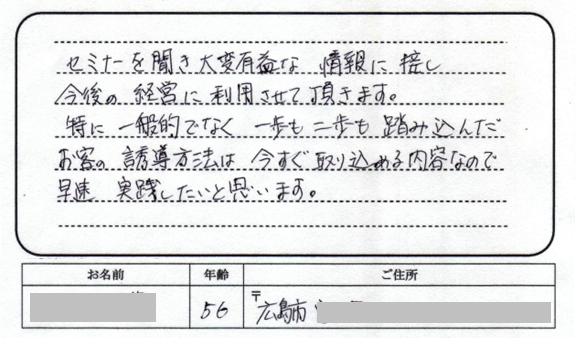 セミナーを聞き大変有益な 情報に 接し
今後の 経営に 利用させて頂きます。
特に 一般的でなく 一歩も 二歩も 踏み込んだ
お客の 誘導方法は 今すぐ 取り込める内容なので
早速 実践したいと思います。
お名前 年齢 ご住所
56 〒広島市